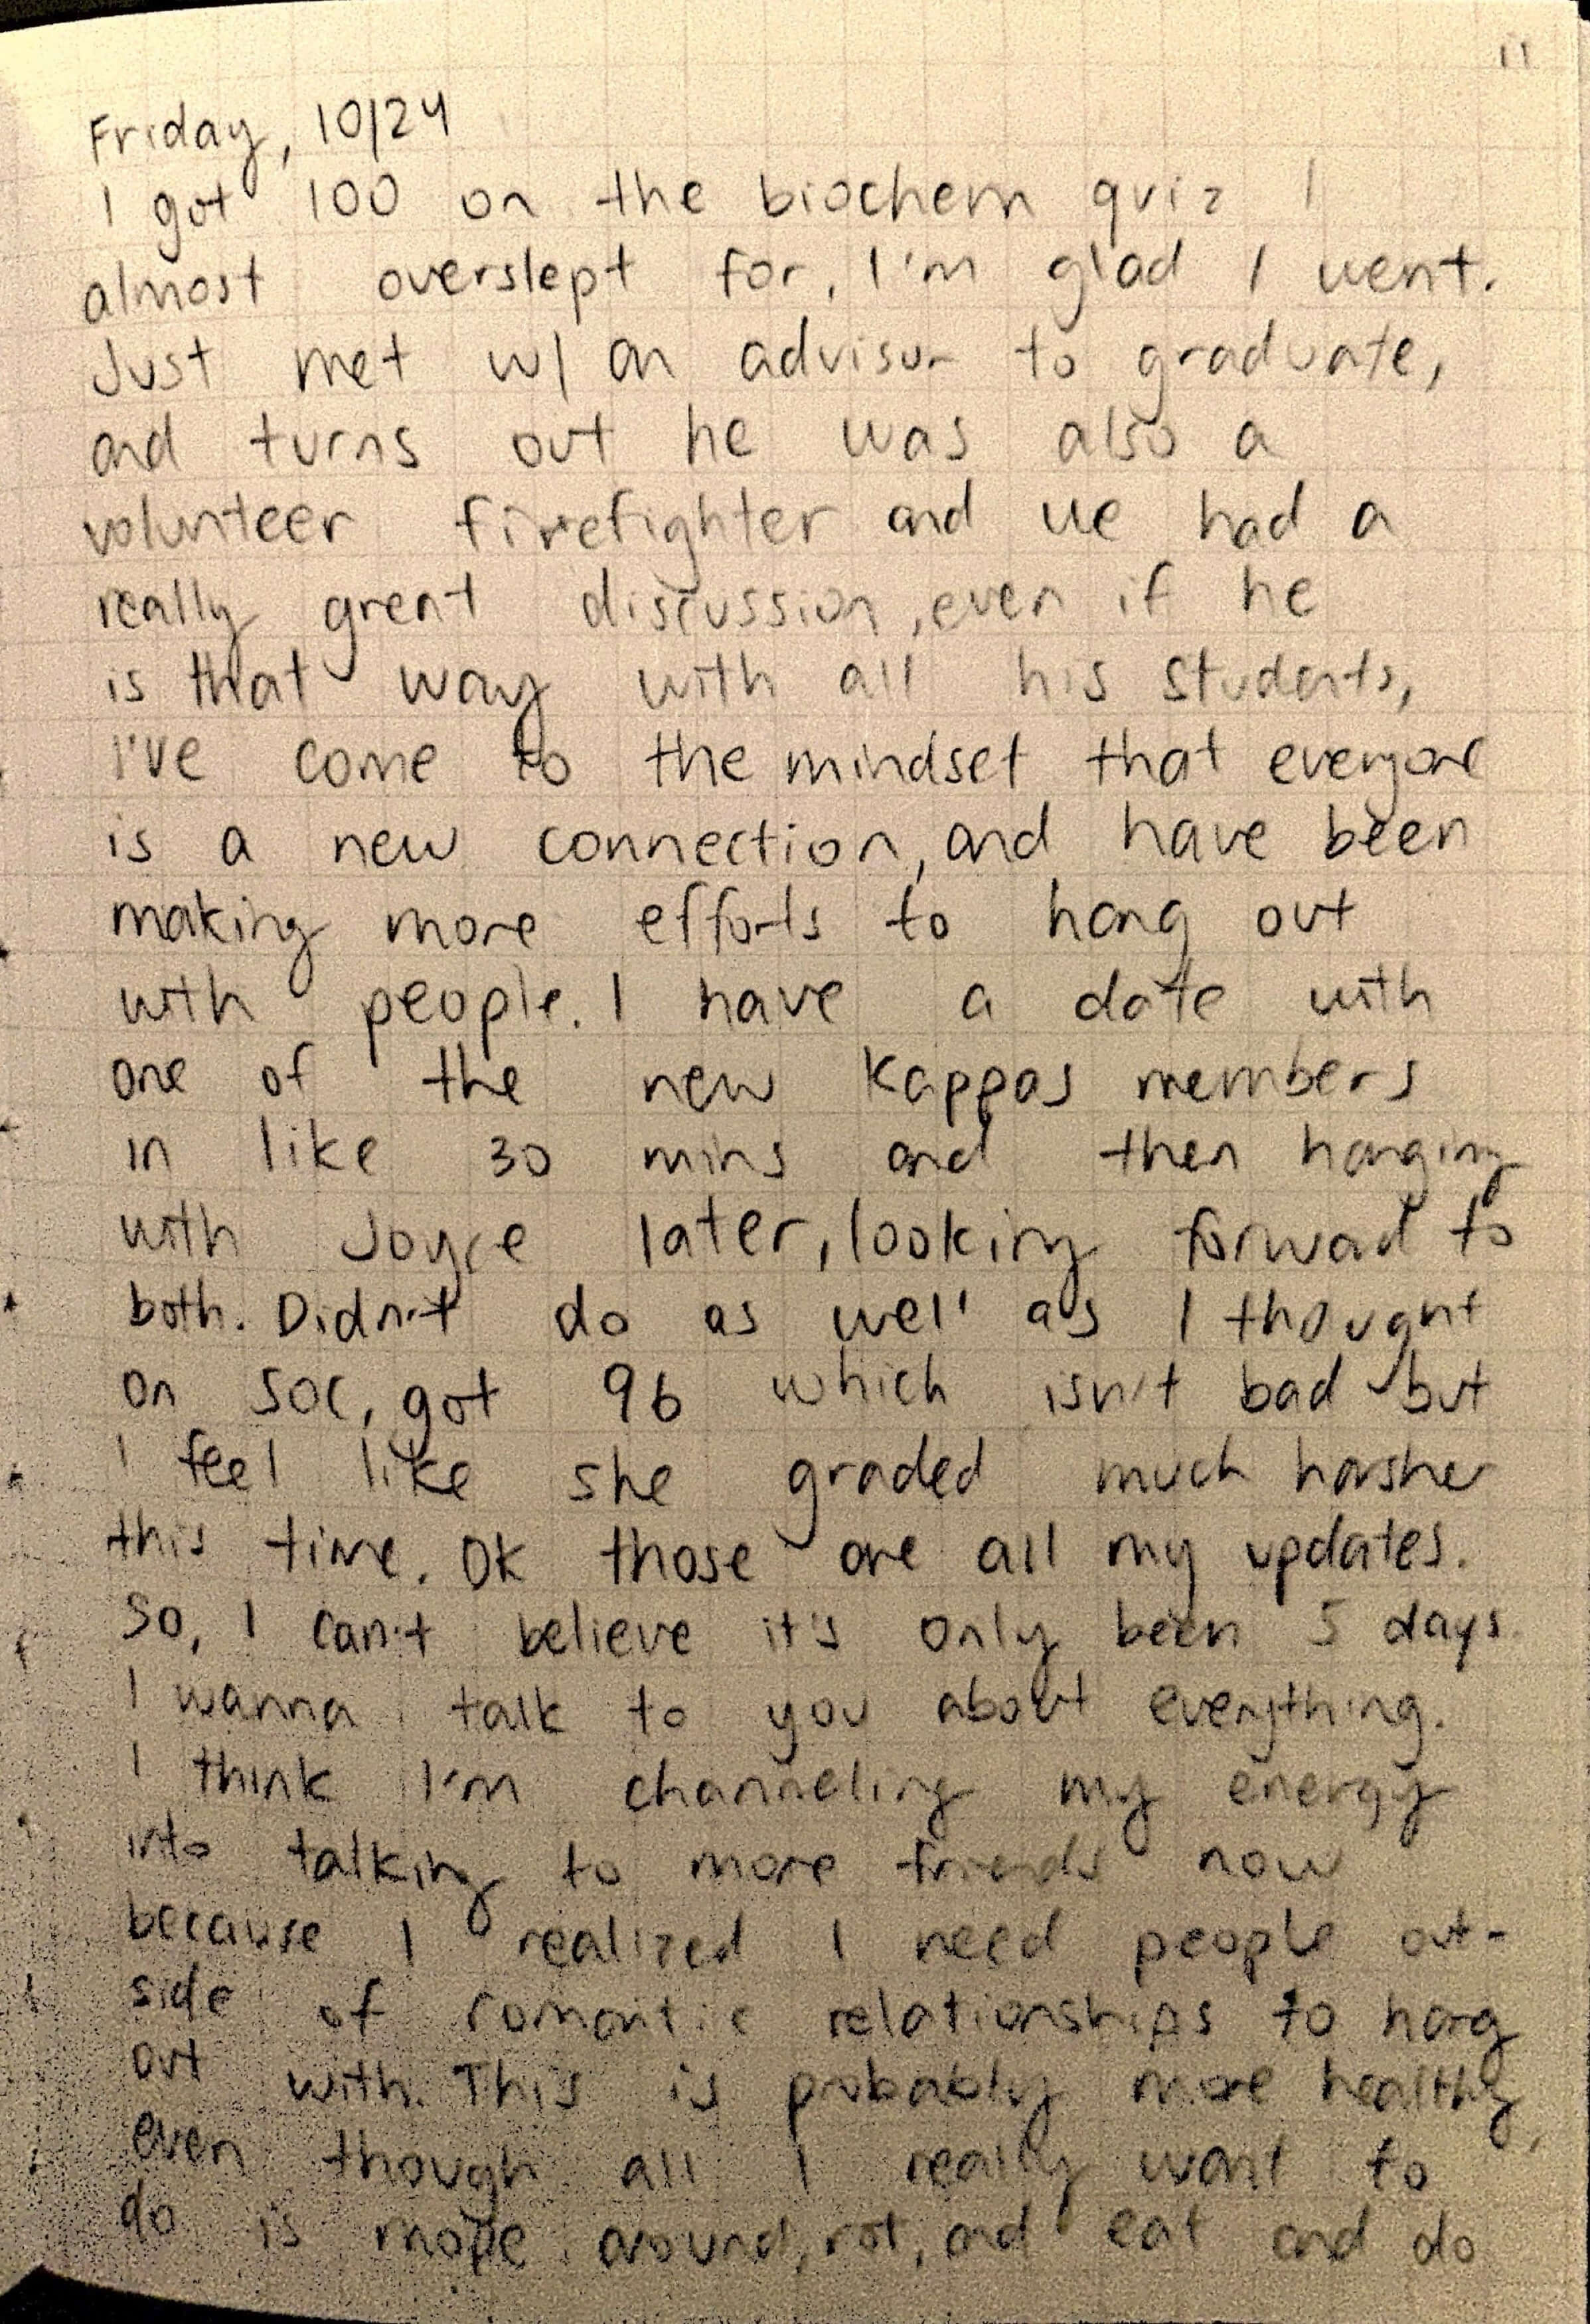 11
Friday, 10/24
I got 100 on the biochem quiz I
almost overslept for, I'm glad I went.
Just met w/ an advisor to graduate,
and turns out he was also a
volunteer firefighter and we had a
really great discussion, even if he
is that way with all his students,
I've come to the mindset that everyone
is a new connection, and have been
making more efforts to hang out
with people. I have a date with
one of the new Kappas members
in like 30 mins and then hanging
with Joyce later, looking forward to
both. Didn't do as well as I thought
on soc, got 96 which isn't bad but
I feel like she graded much harsher
this time. Ok those are all my updates.
So, I can't believe it's only been 5 days.
I wanna talk to you about everything.
I think I'm channeling my energy
into talking to more friends now
because I realized I need people out-
side of romantic relationships to hang
out with. This is probably more healthy,
even though all I really want to
do is mope around, rot, and eat and do